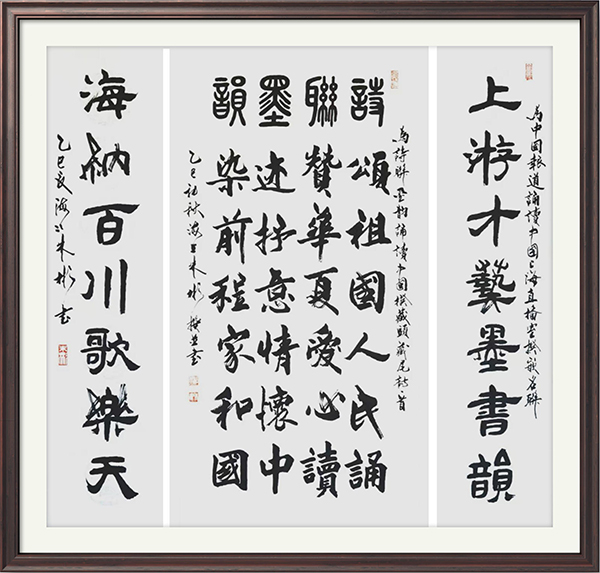 為中國報道誦讀中國上海直播室嵌名聯
上游才藝墨書韻
為詩聯墨韻誦讀中國撰藏頭藏尾詩一首
詩頌祖國人民誦
聯贊華夏愛心讀
墨述抒意情懷中
韻染前程家和國
乙巳初秋海上朱彬撰並書
海納百川歌樂天
乙巳 海上朱彬書